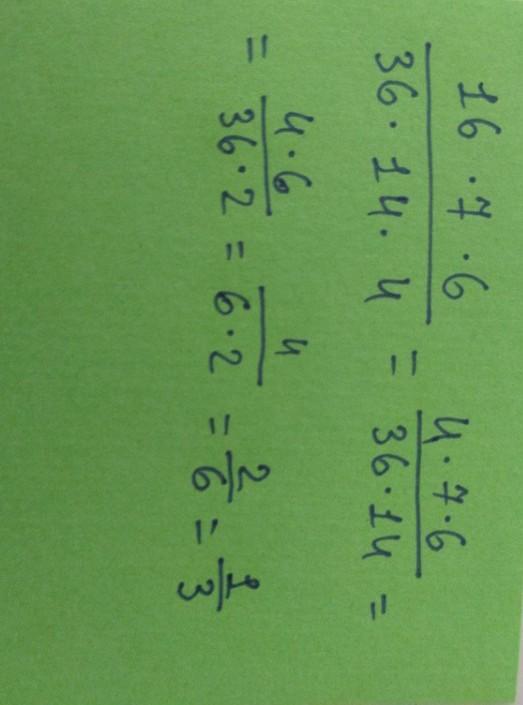 16 · 7 · 6 / 36 · 14 · 4 = 4 · 7 · 6 / 36 · 14 =
= 4 · 6 / 36 · 2 = 4 / 6 · 2 = 2 / 6 = 1 / 3